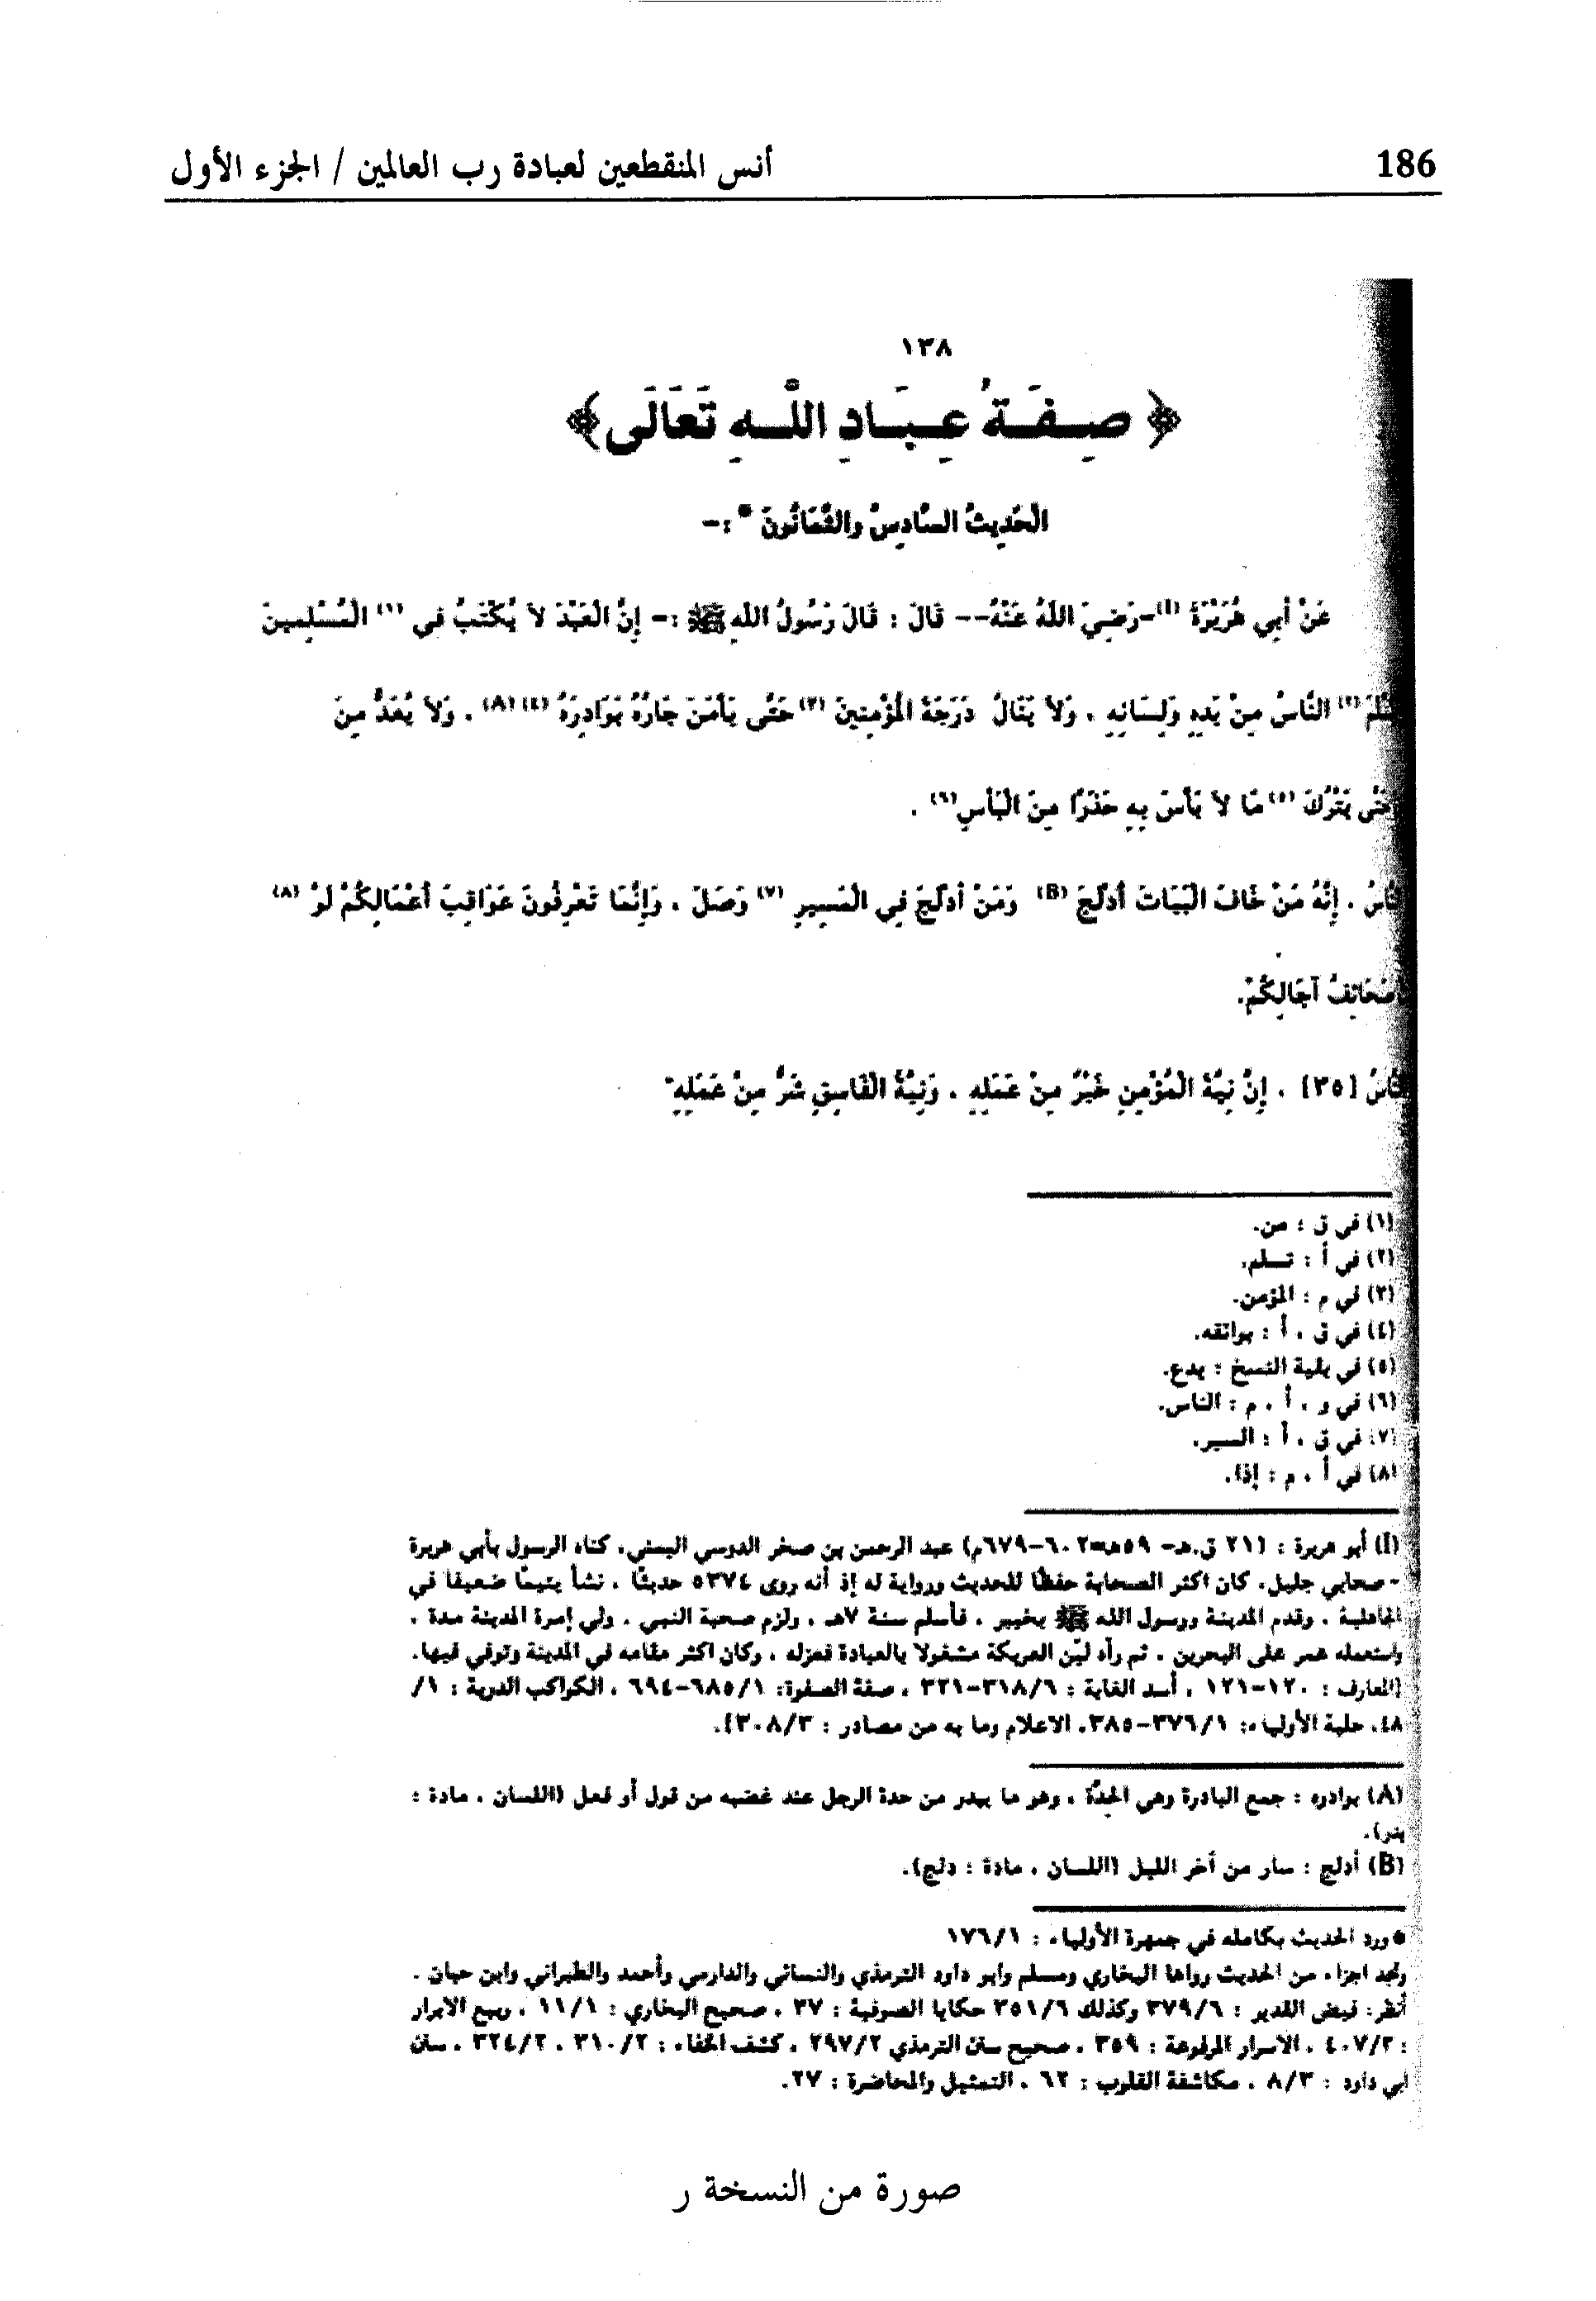 186
أنس المنقطعين لعبادة رب العالمين / الجزء الأول
١٣٨
﴿ صِفَةُ عِبَادِ اللَّهِ تَعَالَى ﴾
الْحَدِيثُ السَّادِسُ والثَّمَانُونَ * :-
عَنْ أَبِي هُرَيْرَةَ (I) -رَضِيَ اللَّهُ عَنْهُ-- قَالَ : قَالَ رَسُولُ اللَّهِ ﷺ :- إِنَّ الْعَبْدَ لاَ يُكْتَبُ فِي (١) الْمُسْلِمِينَ
(٢) النَّاسُ مِنْ يَدِهِ وَلِسَانِهِ ، وَلاَ يَنَالُ دَرَجَةَ الْمُؤْمِنِينَ (٣) حَتَّى يَأْمَنَ جَارُهُ بَوَادِرَهُ (٤) (A) ، وَلاَ يُعَدُّ مِنَ
حَتَّى يَتْرُكَ (٥) مَا لاَ بَأْسَ بِهِ حَذَرًا مِنَ الْبَأْسِ (٦) .
، إِنَّهُ مَنْ خَافَ الْبَيَاتَ أَدْلَجَ (B) وَمَنْ أَدْلَجَ فِي الْمَسِيرِ (٧) وَصَلَ ، وَإِنَّمَا تَعْرِفُونَ عَوَاقِبَ أَعْمَالِكُمْ لَوْ (٨)
صَحَائِفُ آجَالِكُمْ.
[٣٥] ، إِنَّ نِيَّةَ الْمُؤْمِنِ خَيْرٌ مِنْ عَمَلِهِ ، وَنِيَّةُ الْفَاسِقِ شَرٌّ مِنْ عَمَلِهِ
(١) في ق : من.
(٢) في أ : تسلم.
(٣) في م : المؤمن.
(٤) في ق ، أ : بوائقه.
(٥) في بقية النسخ : يدع.
(٦) في و ، أ ، م : الناس.
(٧) في ق ، أ : السير.
(٨) في أ ، م : إذا.
(I) أبو هريرة : (٢١ ق.هـ- ٥٩هـ=٦٠٢-٦٧٩م) عبد الرحمن بن صخر الدوسي اليمني، كناه الرسول بأبي هريرة
- صحابي جليل، كان اكثر الصحابة حفظًا للحديث ورواية له إذ أنه روى ٥٣٧٤ حديثًا ، نشأ يتيمًا ضعيفا في
الجاهلية ، وقدم المدينة ورسول الله ﷺ بخيبر ، فأسلم سنة ٧هـ ، ولزم صحبة النبي ، ولي إمرة المدينة مدة ،
واستعمله عمر على البحرين ، ثم رآه ليّن العريكة مشغولا بالعبادة فعزله ، وكان اكثر مقامه في المدينة وتوفي فيها.
(المعارف : ١٢٠-١٢١ ، أسد الغابة : ٣١٨/٦-٣٢١ ، صفة الصفوة: ٦٨٥/١-٦٩٤ ، الكواكب الدرية : ١/
٤٨، حلية الأولياء: ٣٧٦/١-٣٨٥، الاعلام وما به من مصادر : ٣٠٨/٣).
(A) بوادره : جمع البادرة وهي الحِدَّة ، وهو ما يبدر من حدة الرجل عند غضبه من قول أو فعل (اللسان ، مادة :
بدر).
(B) أدلج : سار من آخر الليل (اللسان ، مادة : دلج).
* ورد الحديث بكامله في جمهرة الأولياء : ١٧٦/١
ونجد اجزاء من الحديث رواها البخاري ومسلم وابو داود الترمذي والنسائي والدارمي وأحمد والطبراني وابن حبان .
أنظر: فيض القدير : ٣٧٩/٦ وكذلك ٣٥١/٦ حكايا الصوفية : ٣٧ ، صحيح البخاري : ١١/١ ، ربيع الابرار
: ٤٠٧/٢ ، الأسرار المرفوعة : ٣٥٩ ، صحيح سنن الترمذي ٢٩٧/٢ ، كشف الخفاء : ٣١٠/٢ ، ٣٢٤/٢ ، سنن
ابي داود : ٨/٣ ، مكاشفة القلوب : ٦٢ ، التمثيل والمحاضرة : ٢٧.
صورة من النسخة ر